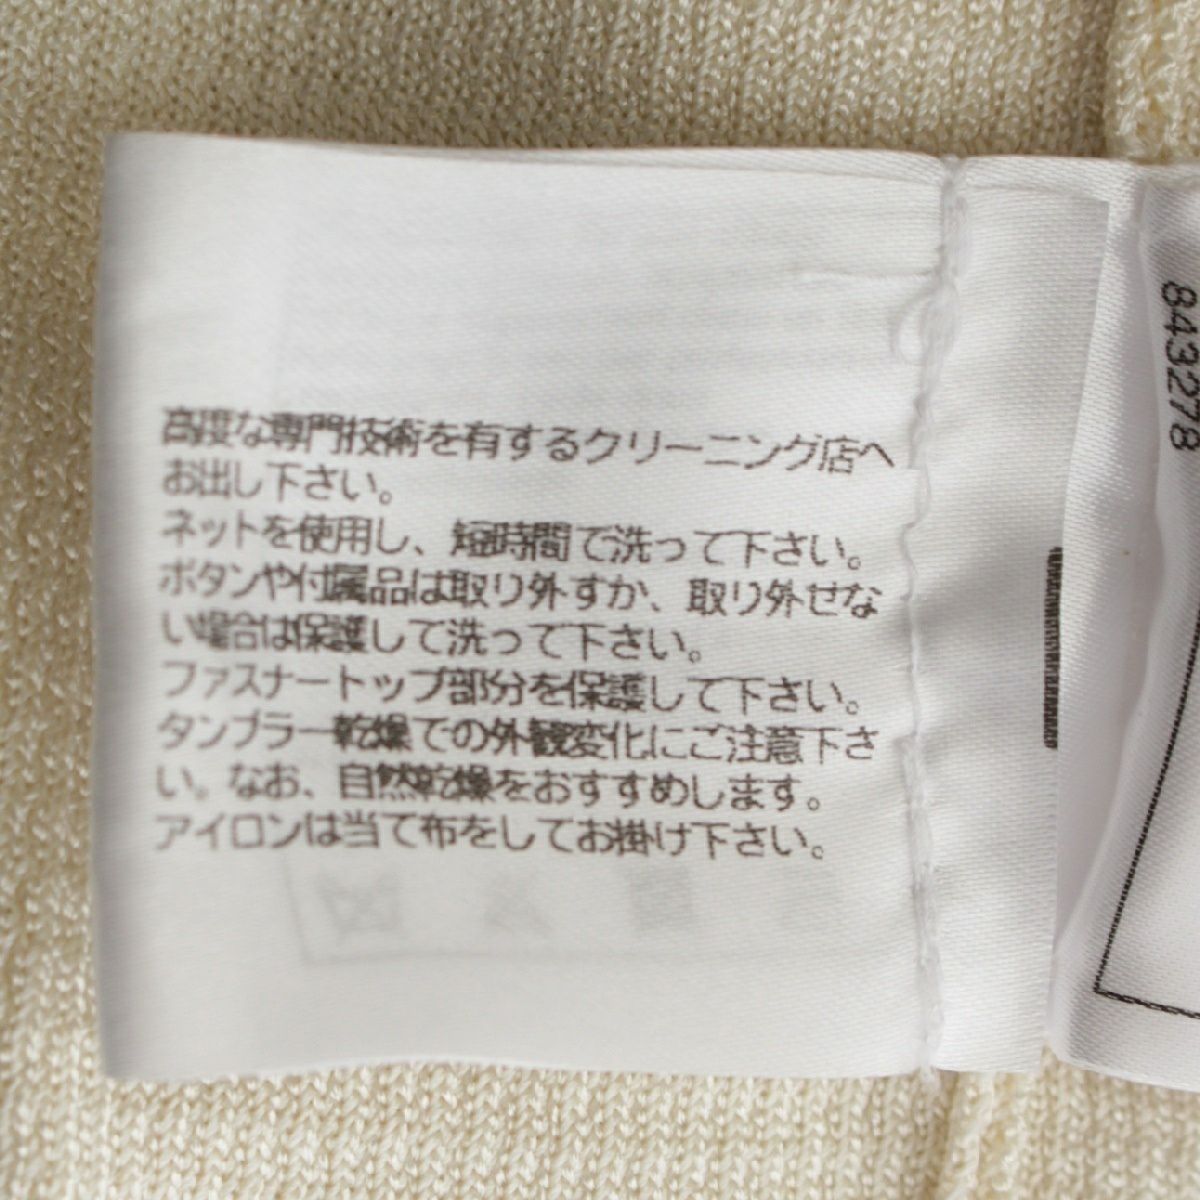 高度な専門技術を有するクリーニング店へ
お出し下さい。
ネットを使用し、短時間で洗って下さい。
ボタンや付属品は取り外すか、取り外せな
い場合は保護して洗って下さい。
ファスナートップ部分を保護して下さい。
タンブラー乾燥での外観変化にご注意下さ
い。なお、自然乾燥をおすすめします。
アイロンは当て布をしてお掛け下さい。
843278